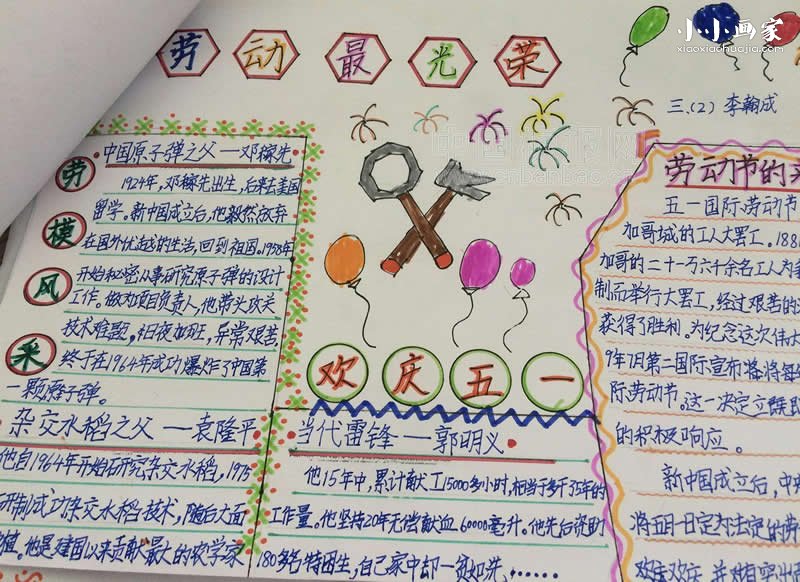 劳动最光荣
小小画家
xiaoxiaohuajia.com
三(2) 李翰成
劳模风采
中国原子弹之父—邓稼先
1924年,邓稼先出生,后来去美国
留学。新中国成立后,他毅然放弃
在国外优越的生活,回到祖国。1958年
开始秘密从事研究原子弹的设计
工作。做为项目负责人,他带头攻关
技术难题,日夜加班,异常艰苦,
终于在1964年成功爆炸了中国第
一颗原子弹。
杂交水稻之父—袁隆平
他自1964年开始研究杂交水稻,1975
研制成功杂交水稻技术,随后大面
值。他是建国以来贡献最大的农学家
欢庆五一
当代雷锋—郭明义
他15年中,累计献工15000多小时,相当于多干35年的
工作量。他坚持20年无偿献血60000毫升。他先后资助
180多名特困生,自己家中却一贫如洗,……
劳动节的
五一国际劳动节
加哥城的工人大罢工。188
加哥的二十一万六千余名工人为
制而举行大罢工,经过艰苦的
获得了胜利。为纪念这次伟大
9年7月第二国际宣布将将每
际劳动节。这一决定立即
的积极响应。
新中国成立后,中
将五月一日定为法定的劳
欢庆